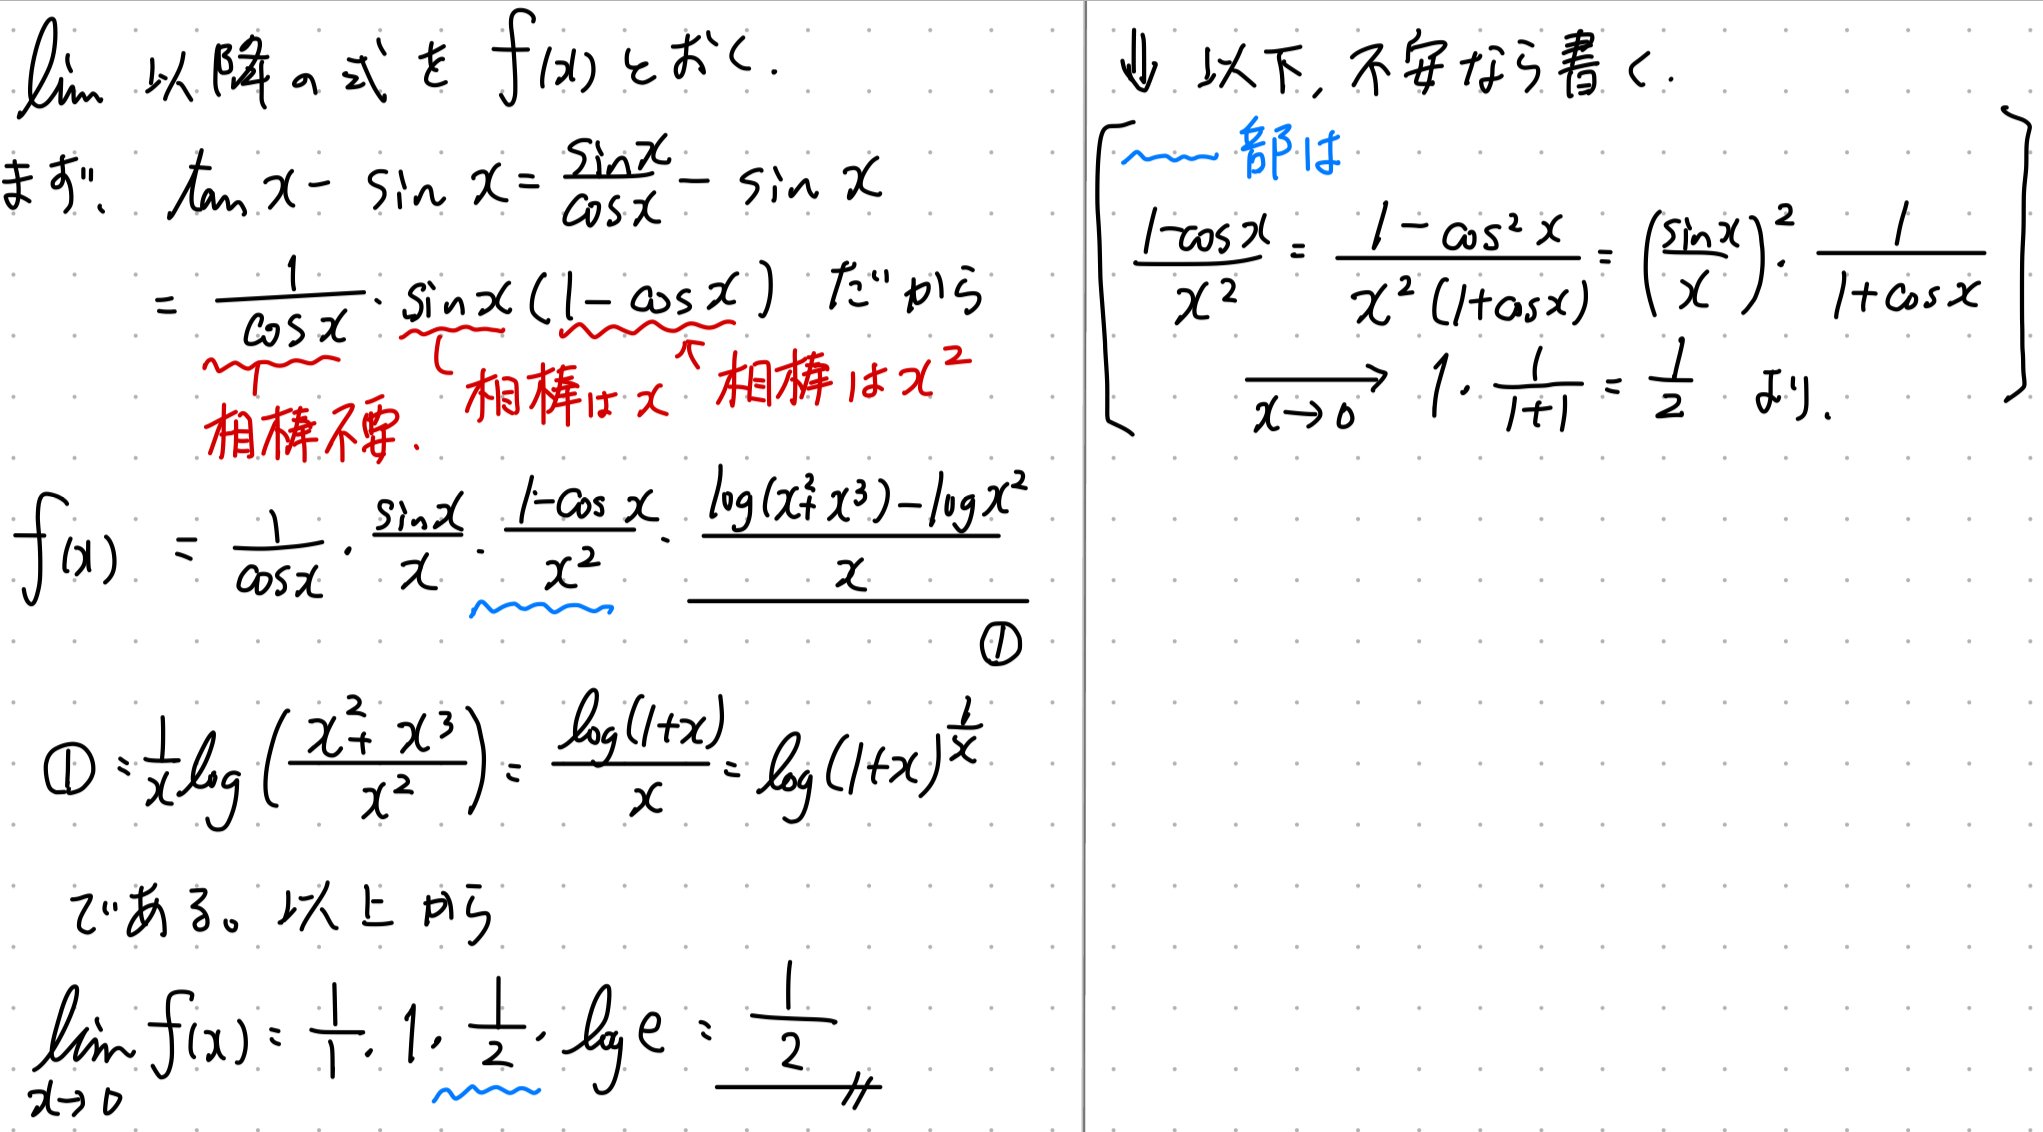 lim 以降の式を f(x) とおく.
まず、 tan x - sin x = sin x / cos x - sin x
= 1 / cos x · sin x (1 - cos x) だから
相棒不要. 相棒は x 相棒は x²
f(x) = 1 / cos x · sin x / x · 1 - cos x / x² · log(x² + x³) - log x² / x
①
① = 1/x log (x² + x³ / x²) = log(1+x) / x = log (1+x)^1/x
である。以上から
lim x→0 f(x) = 1/1 · 1 · 1/2 · log e = 1/2
⇓ 以下, 不安なら書く.
〰 部は
1 - cos x / x² = 1 - cos² x / x² (1 + cos x) = (sin x / x)² · 1 / 1 + cos x
→ x→0 1 · 1 / 1+1 = 1/2 より.